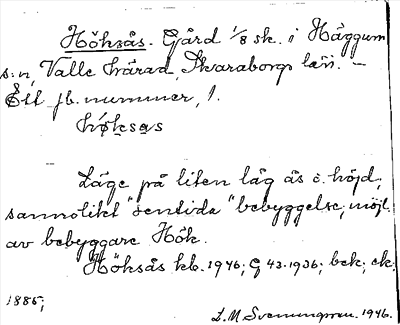 Höksås. Gård 1/8 sk. i Häggum
s:n, Valle härad, Skaraborgs län. –
Ett jb. nummer, 1.
hø̨ksas
Läge på liten låg ås o. höjd,
sannolikt "sentida" bebyggelse, möjl.
av bebyggare Hök.
Höksås kb. 1946; G 43. 1936; bek; ek.
1885;
L. M. Svenungsson. 1946.